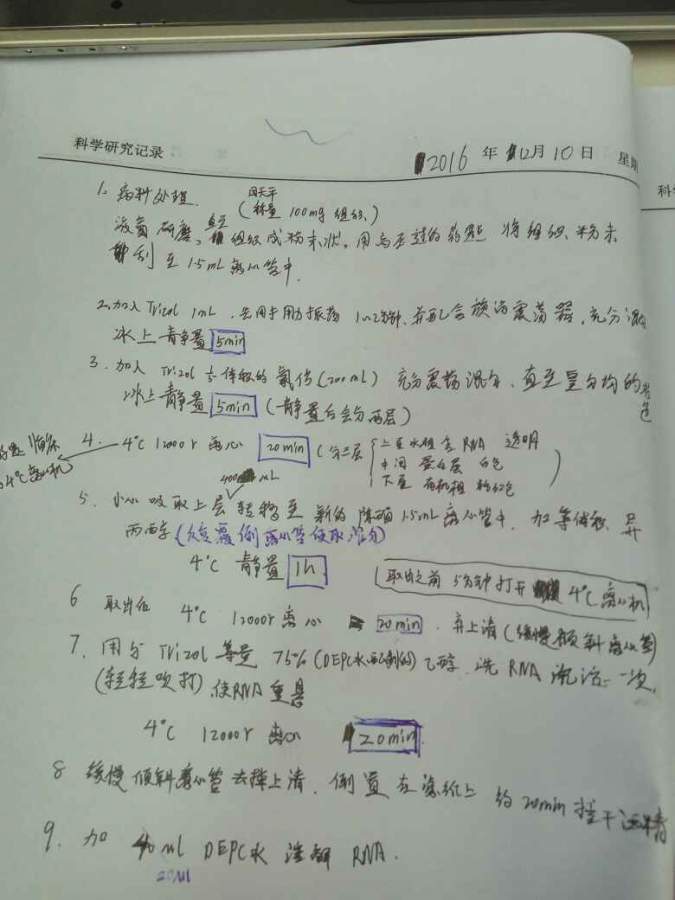 科学研究记录
2016 年 12月 10日 星期
科
1. 病料处理.
(称量 100mg 组织.)
液氮研磨, 组织成粉末状. 用 的药匙 将组织粉末
至 1.5mL 离心管中.
2. 加入 Trizol 1mL, 用手用力振荡 1~2分钟, 旋涡震荡器, 充分混
冰上静置 5min
3. 加入 Trizol ⅕ 体积的氯仿(200ml) 充分震荡混匀, 直至呈均匀的 色
冰上静置 5min (静置后会分两层)
4. 4℃ 12000r 离心 20min (分三层 上层水相含RNA 透明
中间 蛋白层 白色
下层 有机相 粉红色
4℃离心机
400 ul
5. 小心吸取上层 转移至 新的 1.5mL离心管中, 加等体积 异
丙醇
4℃ 静置 1h
取出之前 5分钟打开 4℃离心机
6 取出后 4℃ 12000r 离心 20min. 弃上清(缓慢倾斜离心管)
7. 用与 Trizol 等量 75% (DEPC水配制的) 乙醇, 洗 RNA 沉淀一次,
(轻轻吹打), 使RNA 重悬
4℃ 12000r 离心 20min
8 缓慢倾斜离心管去掉上清. 倒置在滤纸上 约 20min
9. 加 40ul DEPC水 溶解 RNA.
20ul